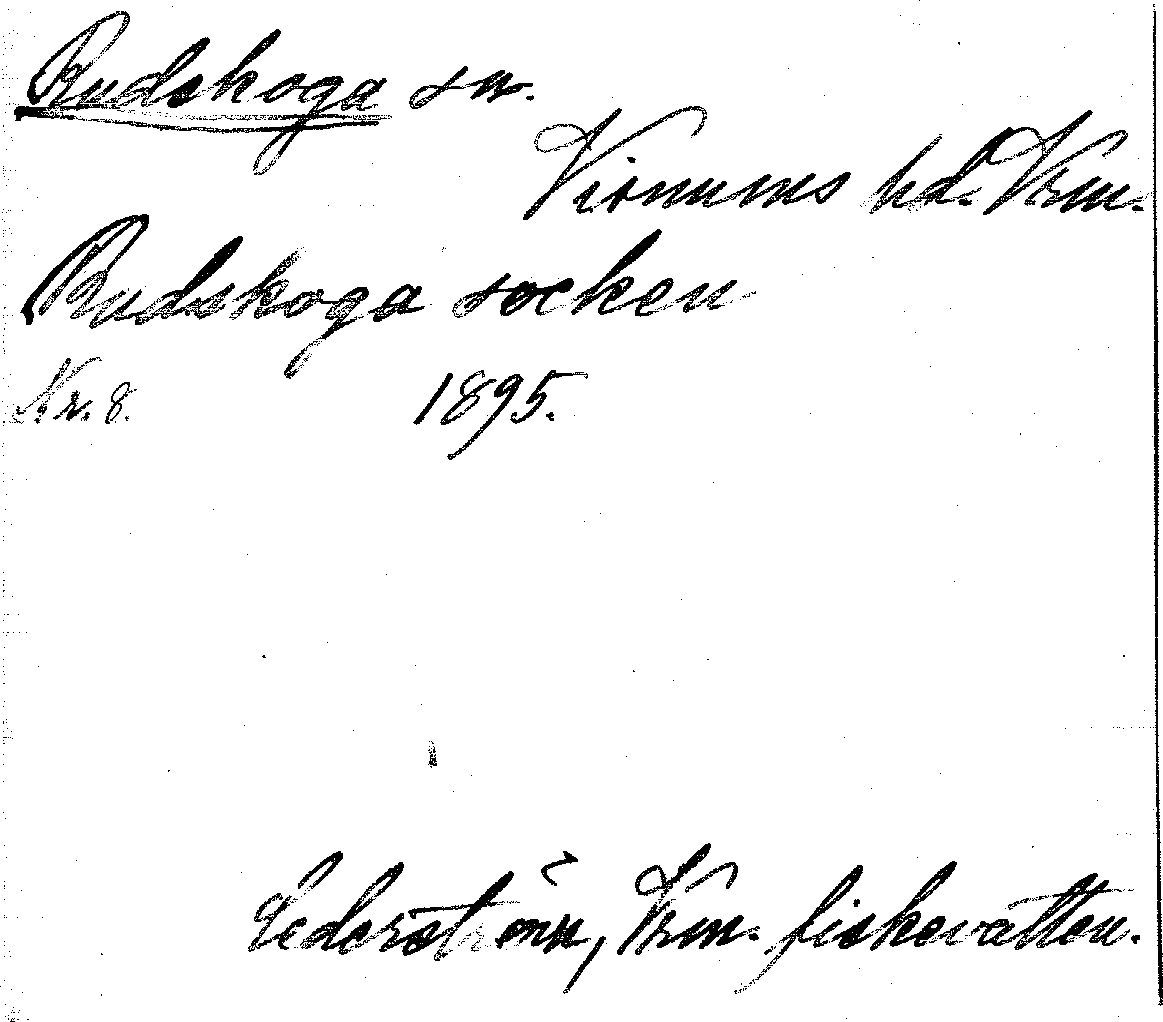 Rudskoga sn.
Visnums hd. Vrm.
Rudskoga socken
Nr. 8. 1895.
Cederström, Vrm. fiskevatten.